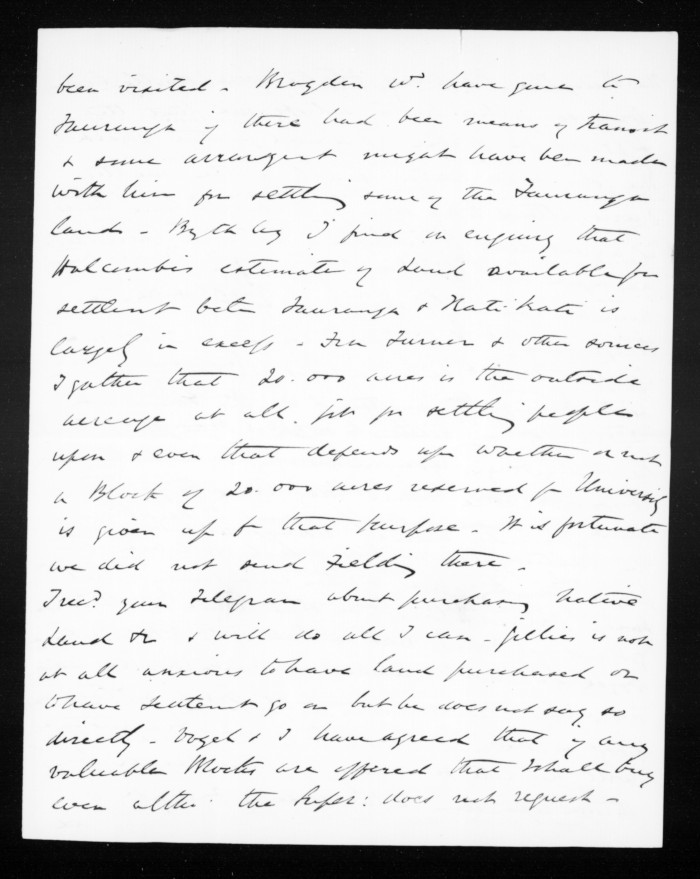 been visited - Brogden wd. have gone to
Tauranga if there had been means of transit
& some arranget might have been made
with him for settling some of the Tauranga
lands - By the by I find on enquiry that
Halcombe's estimate of Land available for
settlent betn Tauranga & Kati Kati is
largely in excess - From Turner & other sources
I gather that 20.000 acres is the outside
acreage at all fit for settling people
upon & even that depends upn whether or not
a Block of 20.000 acres reserved for University
is given up for that purpose - It is fortunate
we did not send Fielding there -
I recd. your Telegram about purchasing Native
Land &c & will do all I can - Gillies is not
at all anxious to have land purchased or
to have settlemt go on but he does not say so
directly - Vogel & I have agreed that if any
valuable Blocks are offered that I shall buy
even altho' the Super: does not request -